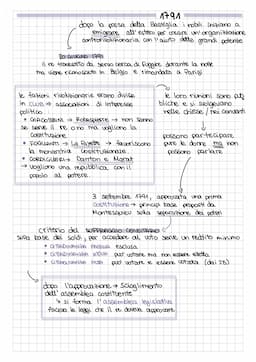 1791
dopo la presa della Bastiglia i nobili iniziano a
emigrare all'estero per creare un'organizzazione
controrivoluzionaria con l'aiuto delle grandi potenze
20 giugno 1791
il re travestito da servo cerca di fuggire durante la notte
ma viene riconosciuto in Belgio e rimandato a Parigi
le fazioni rivoluzionarie erano divise
in CLUB → associazioni di interesse
politico
→ Robespierre → non sanno
se serve il re cino ma vogliono la
costituzione
→ La Fayette → favoriscono
la monarchia costituzionale
• CORDIGLIERI → Danton e Marat
→ vogliono una repubblica con il
popolo al potere
le loro riunioni sono pub
bliche e si svolgevano
nelle chiese / nei conventi
possono partecipare
pure le donne ma non
possono parlare
3 settembre 1791, approvata una prima
costituzione → principi base proposti da
Montesquieu sulla separazione dei poteri
criterio del
sulla base dei soldi, per accedere al voto serve un reddito minimo
esclusa
può votare ma non essere eletta
può votare e essere votata (dai 25)
dopo l'approvazione → scioglimento
dell'assemblea costituente
↳ si forma l'assemblea legislativa
faceva le leggi che il re doveva approvare